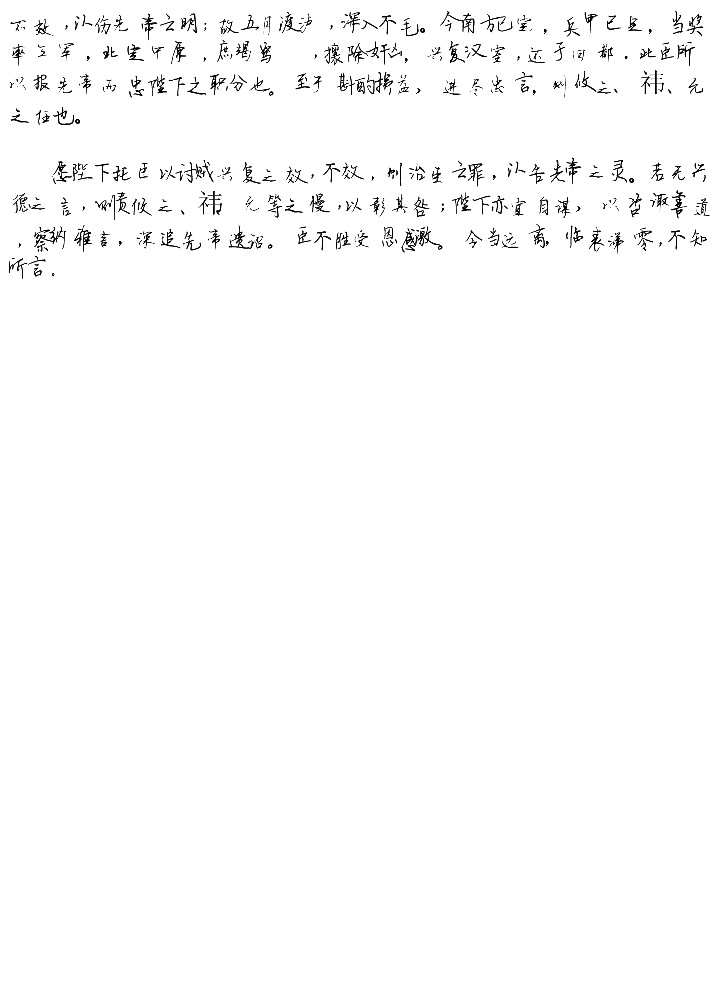 不效，以伤先帝之明；故五月渡泸，深入不毛。今南方已定，兵甲已足，当奖
率三军，北定中原，庶竭驽，攘除奸凶，兴复汉室，还于旧都．此臣所
以报先帝而忠陛下之职分也。至于斟酌损益，进尽忠言，则攸之、祎、允
之任也。
愿陛下托臣以讨贼兴复之效，不效，则治臣之罪，以告先帝之灵。若无兴
德之言，则责攸之、祎 允等之慢，以彰其咎；陛下亦宜自谋，以咨诹善道
，察纳雅言，深追先帝遗诏。臣不胜受恩感激。今当远离，临表涕零，不知
所言．